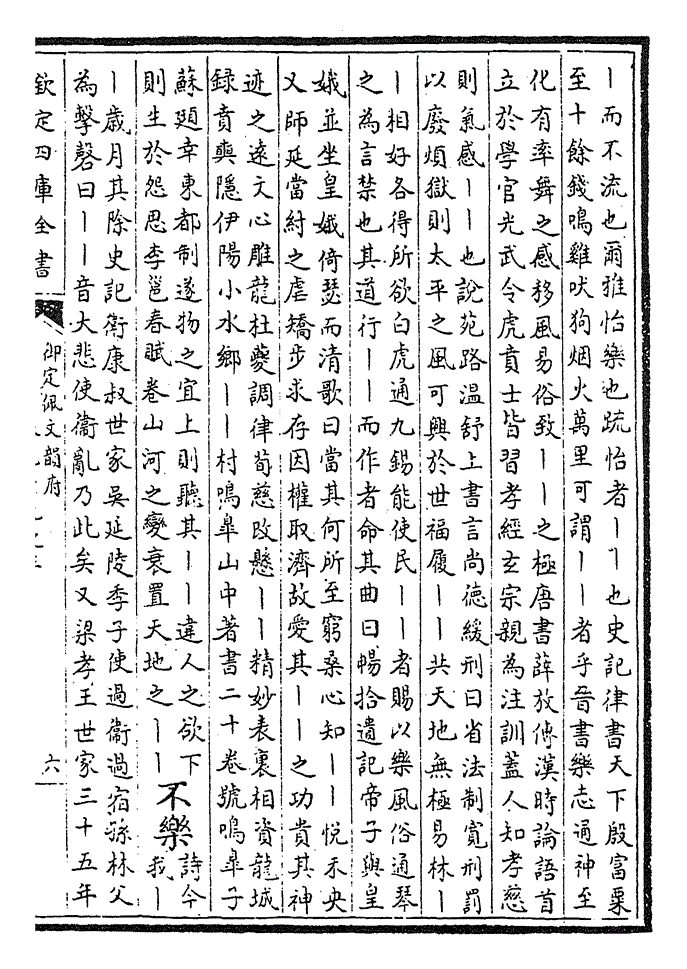 丨而不流也爾雅怡樂也疏怡者丨丨也史記律書天下殷富粟
至十餘錢鳴雞吠狗烟火萬里可謂丨丨者乎晉書樂志通神至
化有率舞之感移風易俗致丨丨之極唐書薛放傳漢時論語首
立於學官光武令虎賁士皆習孝經玄宗親為注訓蓋人知孝慈
則氣感丨丨也說苑路溫舒上書言尚德緩刑曰省法制寬刑罰
以廢煩獄則太平之風可興於世福履丨丨共天地無極易林丨
丨相好各得所欲白虎通九錫能使民丨丨者賜以樂風俗通琴
之為言禁也其道行丨丨而作者命其曲曰暢拾遺記帝子與皇
娥並坐皇娥倚瑟而清歌曰當其何所至窮桑心知丨丨悅未央
又師延當紂之虐矯步求存因權取濟故愛其丨丨之功貴其神
迹之遠文心雕龍杜夔調律荀慈改懸丨丨精妙表裏相資龍城
録賁奭隱伊陽小水鄉丨丨村鳴臯山中著書二十卷號鳴臯子
蘇頲幸東都制遂物之宜上則聽其丨丨違人之欲下
則生於怨思李邕春賦卷山河之變衰置天地之丨丨
不樂
詩今
我丨
丨歲月其除史記衞康叔世家吳延陵季子使過衞過宿孫林父
為擊磬曰丨丨音大悲使衞亂乃此矣又梁孝王世家三十五年
欽定四庫全書
御定佩文韻府
六